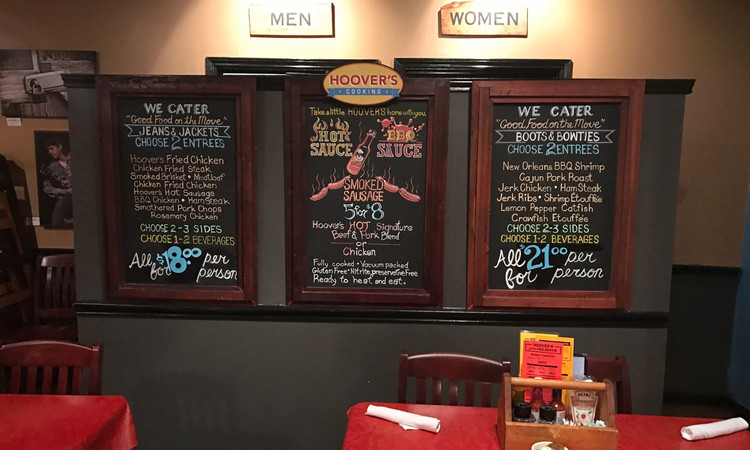 MEN
WOMEN
HOOVER'S
COOKING
WE CATER
"Good Food on the Move"
JEANS & JACKETS
CHOOSE 2 ENTREES
Hoovers Fried Chicken
Chicken Fried Steak
Smoked Brisket • Meatloaf
Chicken Fried Chicken
Hoovers Hot Sausage
BBQ Chicken • Ham Steak
Smothered Pork Chops
Rosemary Chicken
CHOOSE 2-3 SIDES
CHOOSE 1-2 BEVERAGES
All for $18.00 per person
Take a little HOOVER'S home with you.
HOT SAUCE
BBQ SAUCE
SMOKED
SAUSAGE
5 for $8
Hoover's HOT Signature
Beef & Pork Blend
or
Chicken
Fully cooked • Vacuum packed
Gluten Free • Nitrite, preservative Free
Ready to heat and eat.
WE CATER
"Good Food on the Move"
BOOTS & BOWTIES
CHOOSE 2 ENTREES
New Orleans BBQ Shrimp
Cajun Pork Roast
Jerk Chicken • Ham Steak
Jerk Ribs • Shrimp Etouffée
Lemon Pepper Catfish
Crawfish Etouffée
CHOOSE 2-3 SIDES
CHOOSE 1-2 BEVERAGES
All for $21.00 per person
HOOVER'S
HEINZ